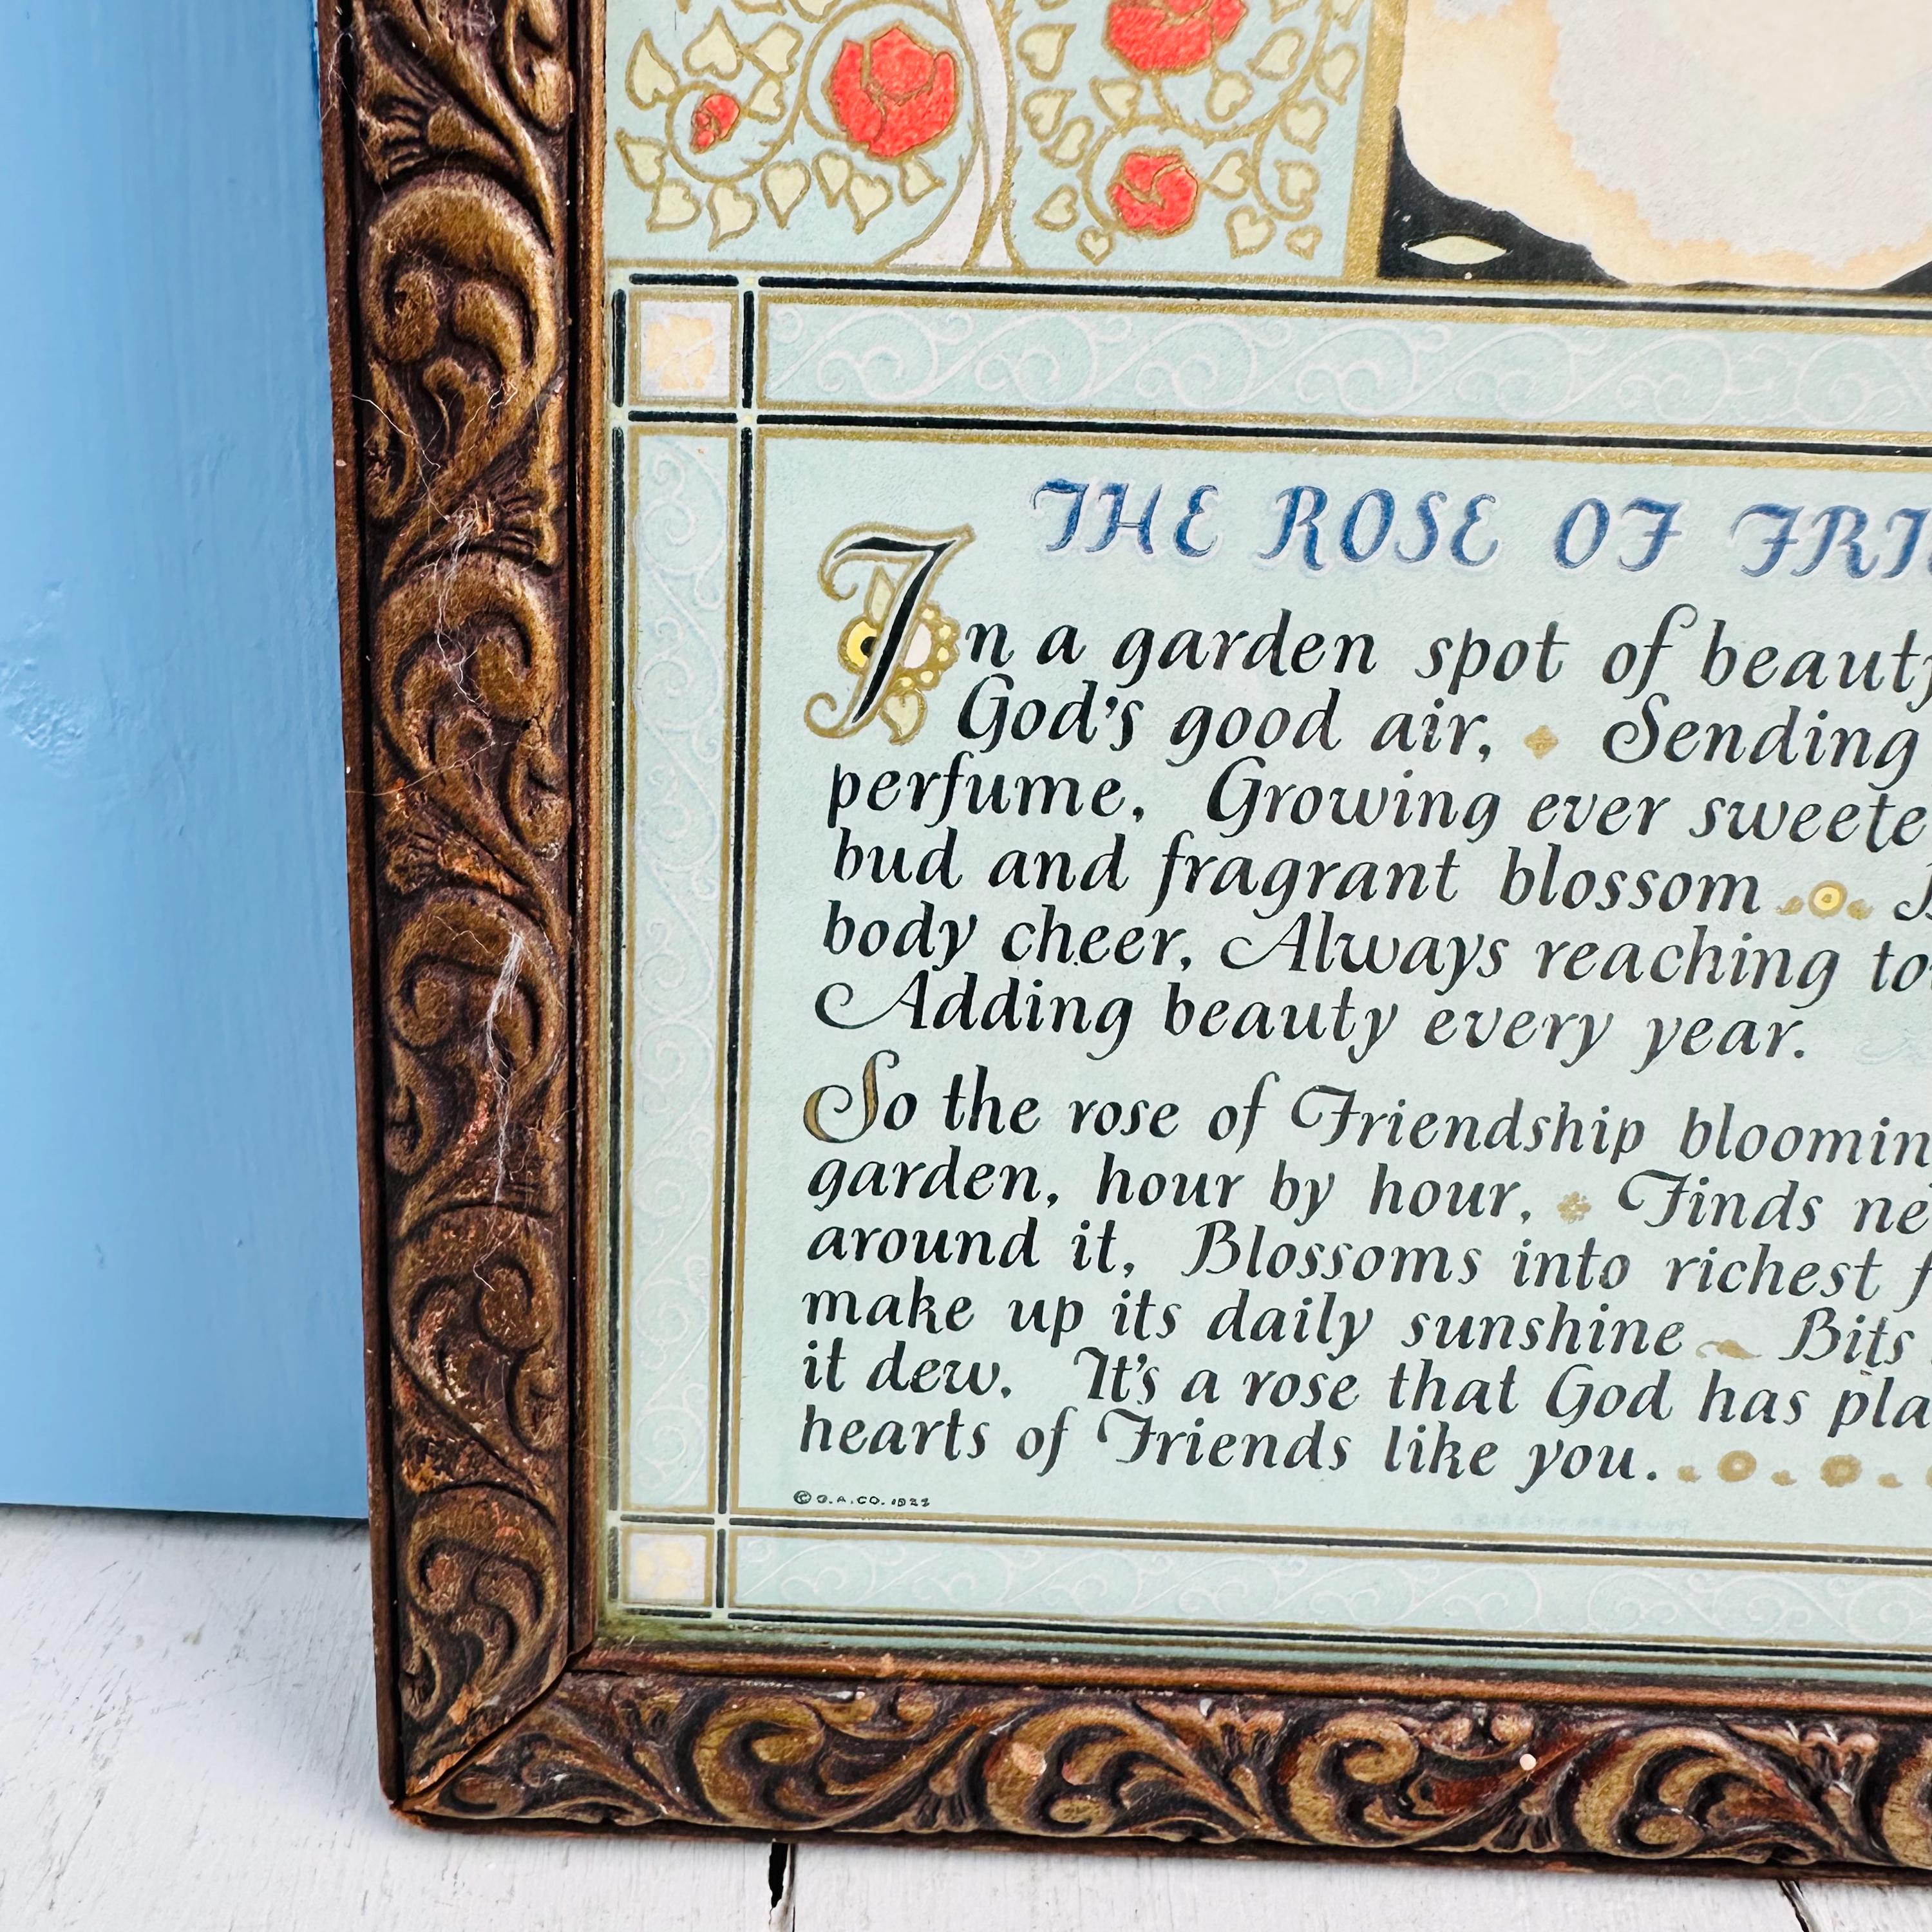 THE ROSE OF
In a garden spot of
God's good air, Sending
perfume, Growing ever
bud and fragrant blossom
body cheer, Always reaching
Adding beauty every year.
So the rose of Friendship
garden, hour by hour, Finds
around it, Blossoms into richest
make up its daily sunshine Bits
it dew. It's a rose that God has
hearts of Friends like you.